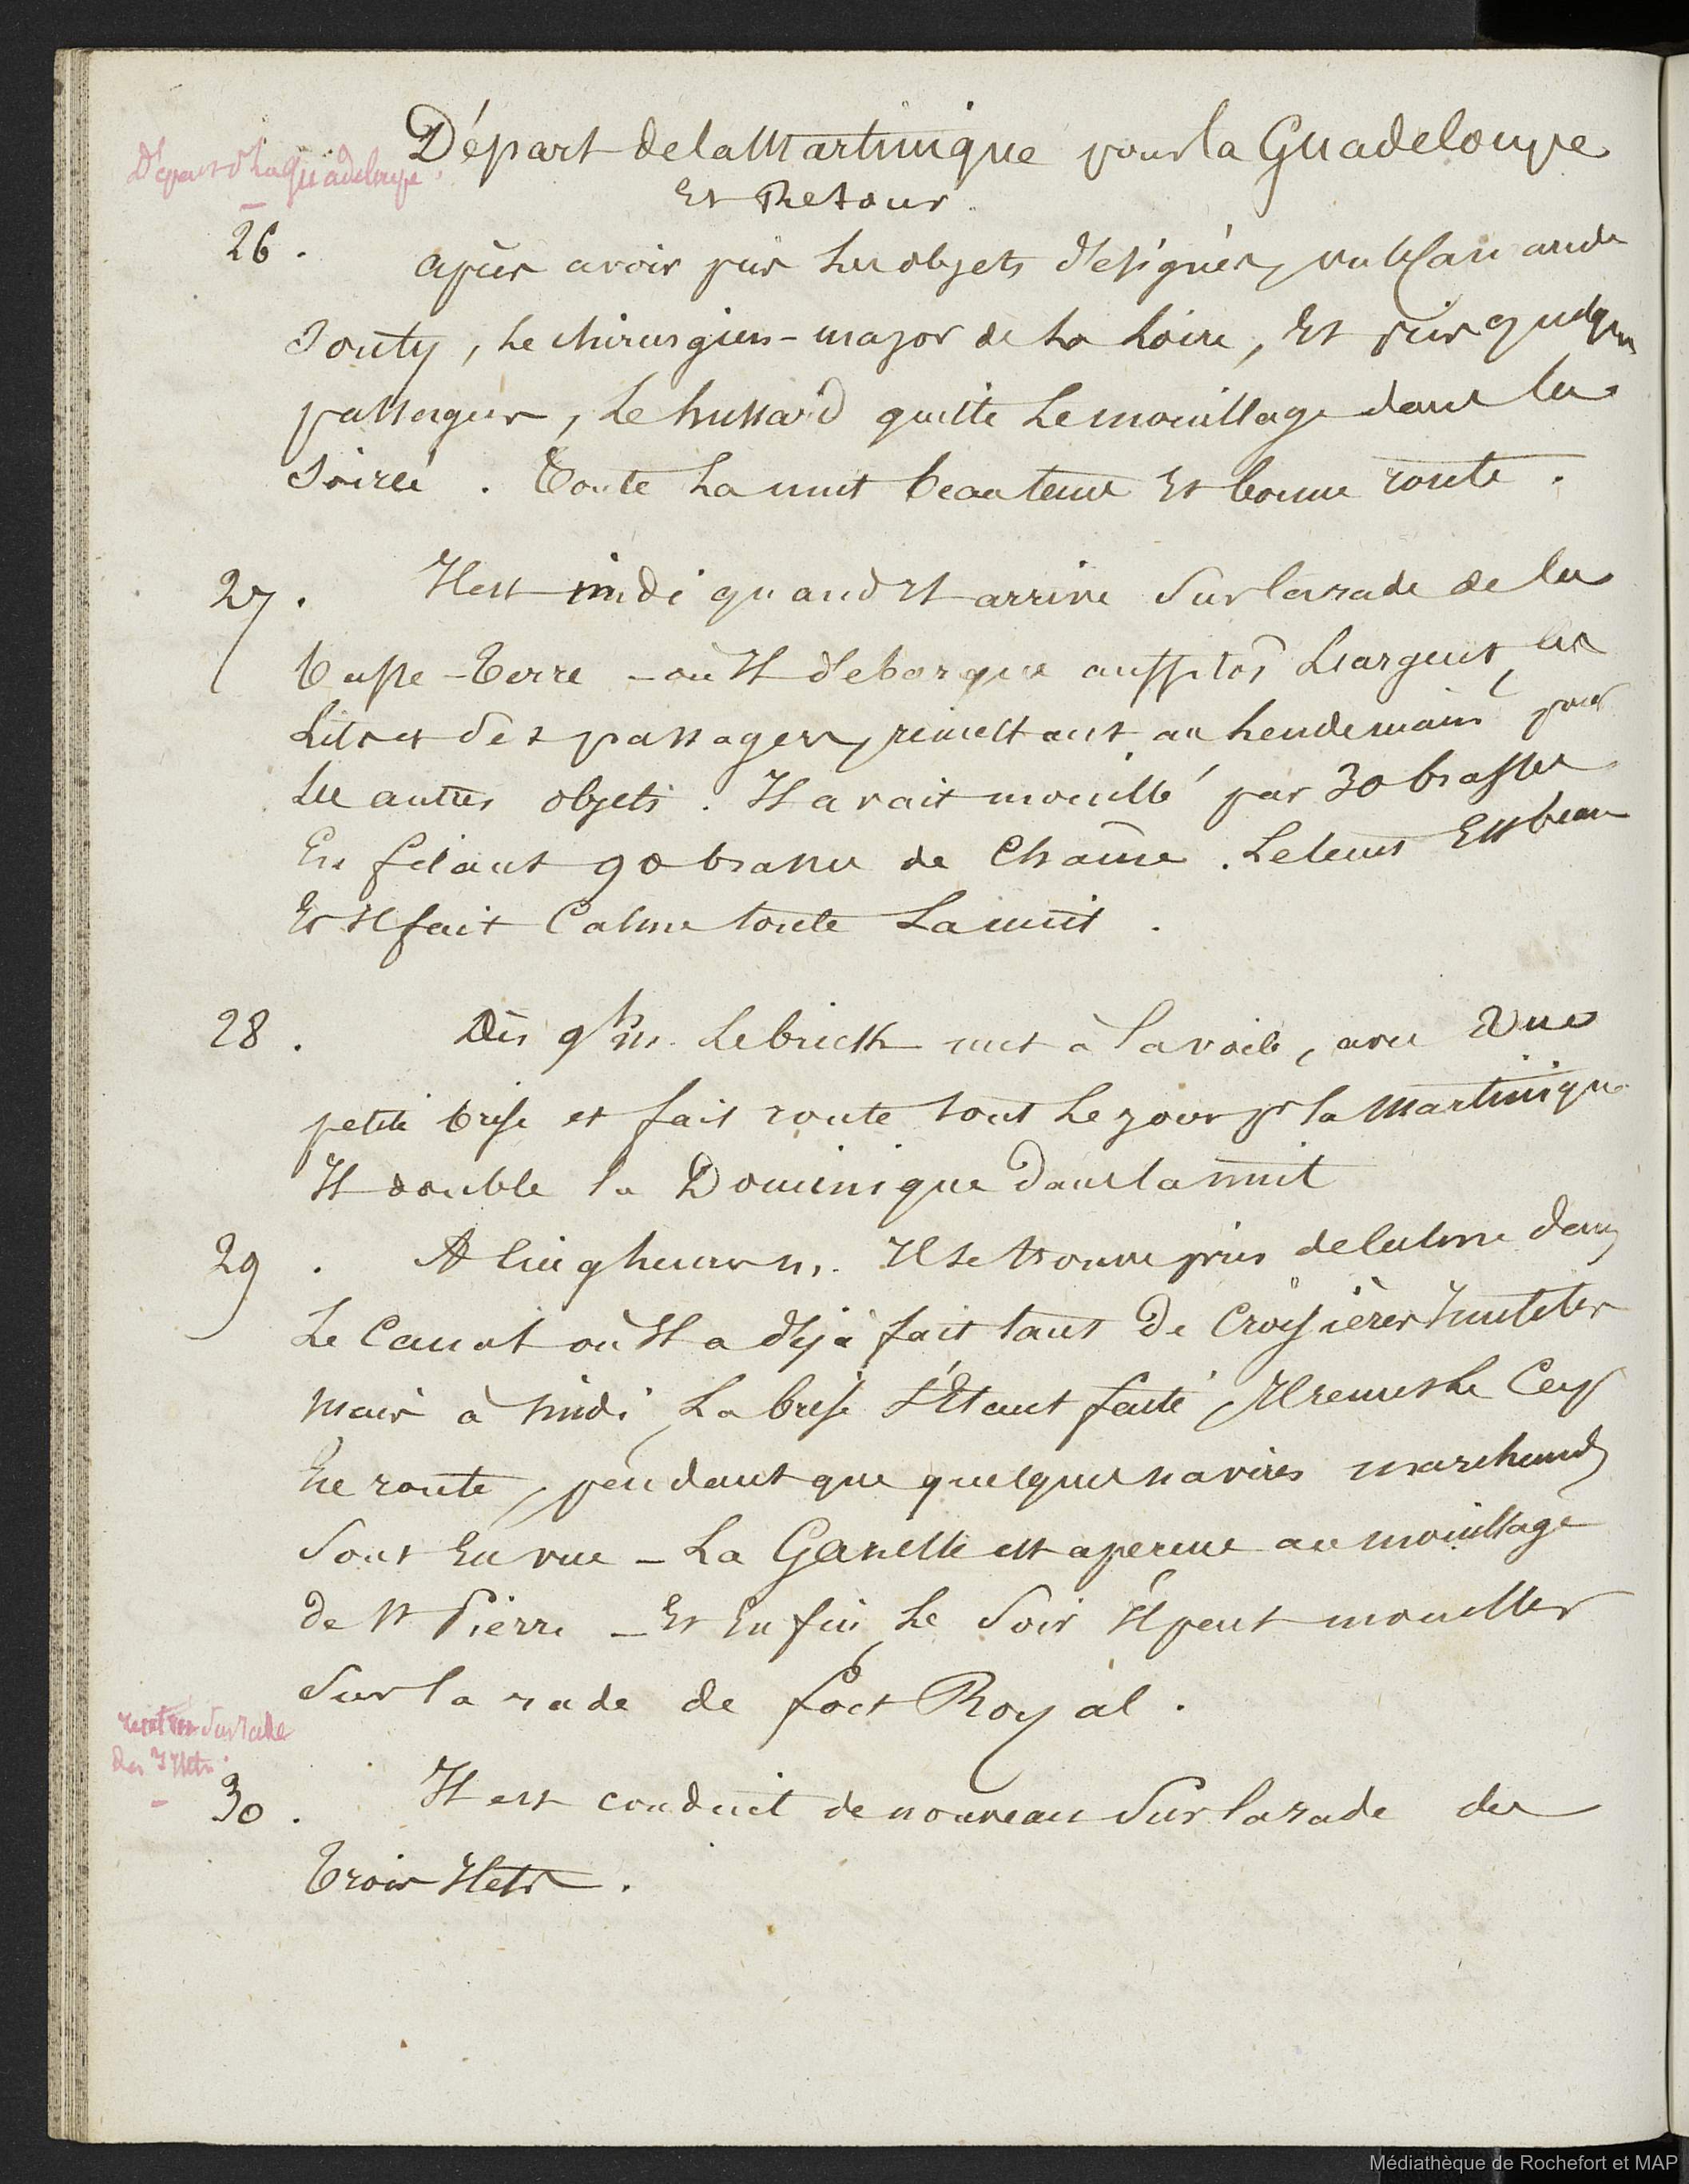 Départ de la Martinique pour la Guadeloupe
Et Retour.
Départ de la Guadeloupe
26. après avoir pris les objets désignés,
Jouty, le chirurgien-major de la Loire, Et pris quelques
passagers, le hussard quitte le mouillage dans la
Soirée. Toute la nuit beau tems Et bonne route.
27. Il est midi quand Il arrive Sur la rade de la
Basse-Terre - où Il débarque aussitôt L'argent, les
Lettres des passagers, remettant au lendemain pour
les autres objets. Il avait mouillé par 30 brasses
En filant 90 brasses de Chaîne. Le tems Est beau
Et Il fait Calme toute La nuit.
28. Dès 9h m. Le brick met à la voile, avec Une
petite brise et fait route tout le jour pr la Martinique
Il double la Dominique dans la nuit
29. A cinq heures m. Il se trouve pris de calme dans
Le Canal où Il a déjà fait tant de Croisières Inutiles
mais à midi, La brise s'Etant faite, Il remet le Cap
En route, pendant que quelques navires marchands
Sont En vue - La Gazelle est aperçue au mouillage
de St Pierre - Et Enfin, le Soir Il peut mouiller
Sur la rade de fort Royal.
rentrée Sur rade
des Ilets
30. Il est conduit de nouveau Sur la rade des
Trois Ilets.
Médiathèque de Rochefort et MAP